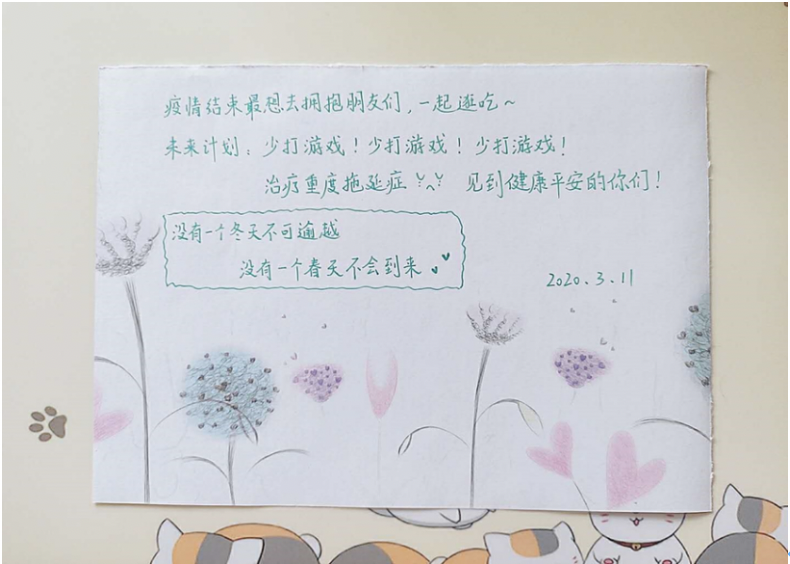 疫情结束最想去拥抱朋友们，一起逛吃~
未来计划：少打游戏！少打游戏！少打游戏！
治疗重度拖延症 见到健康平安的你们！
没有一个冬天不可逾越
没有一个春天不会到来
2020.3.11